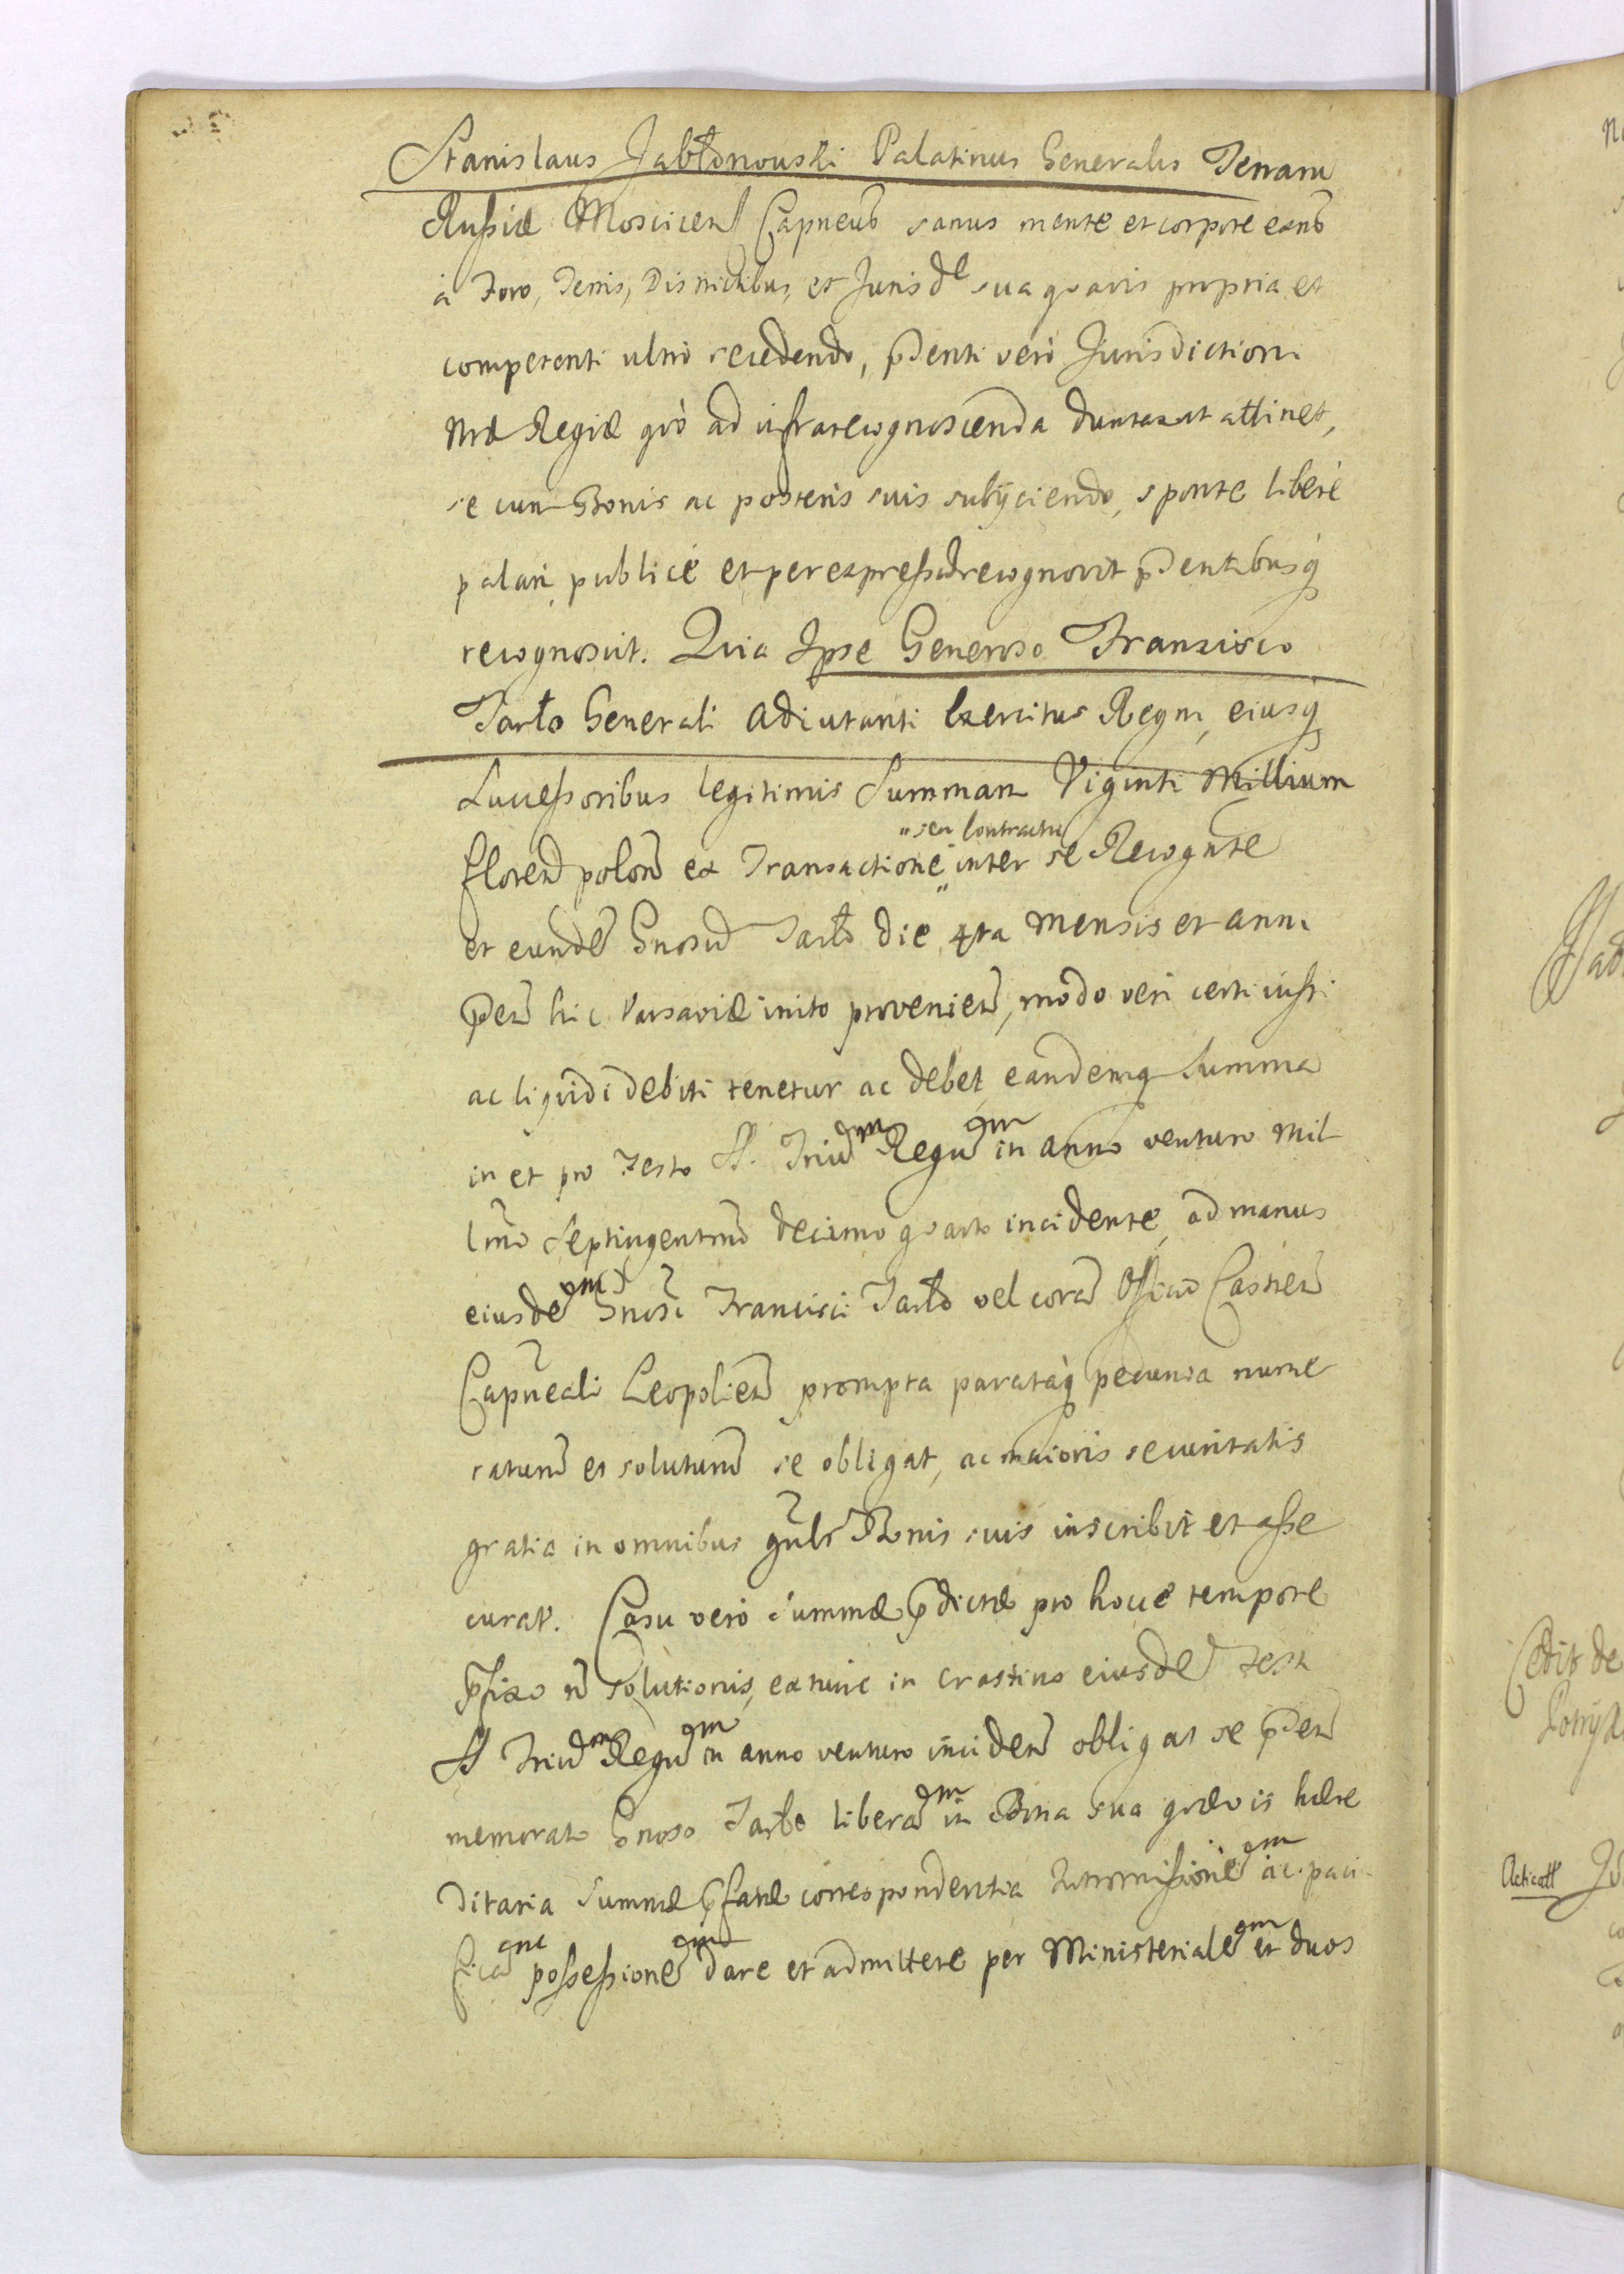 Stanislaus Jabłonouski Palatinus Generalis Terraru
Russiæ Moscicen Capneus sanus mente et corpore exns
à Foro, Terris, Districtibus, et Jurisde sua quavis propria et
competenti ultrò recedendo, pdenti verò Jurisdictioni
Mræ Regiæ quò ad infrarecognoscenda duntaxat attinet,
se cum Bonis ac posteris suis subÿciendo, sponte liberè
palam publicè et per expressu recognovit pdentibusq
recognoscit. Quia Ipse Generoso Francisco
Tarło Generali Adiutanti Exercitus Regni, eiusq
Successoribus legitimis Summam Viginti Millium
"seu Contractu
floren polon ex Transactione" inter se Recognte
et eunde Gnosu Tarło die 4ta Mensis et anni
pden hic Varsaviæ inito provenien, modo veri certi iusti
ac liquidi debiti tenetur ac debet, eandemq Summa
in et pro Festo SS. Triu Regu in anno venturo mil
lmo Septingentmo decimo quarto incidente, ad manus
eiusde Gnosi Francisci Tarło vel cora Officio Castren
Capneali Leopolien prompta parataq pecunia nume
raturu et soluturu se obligat, ac maioris securitatis
gratia in omnibus gnlr Bonis suis inscribit et asse
curat. Casu verò summæ pdictæ pro hocce tempore
pfixo n solutionis, extunc in crastino eiusde Festi
SS Triu Regu in anno venturo inciden obligat se pden
memorato Gnoso Tarło libera in Bona sua quævis hære
ditaria Summæ pfatæ correspondentia Intromissione ac paci
fica possessione dare et admittere per Ministeriale et duos
Cedit de
Acticatt